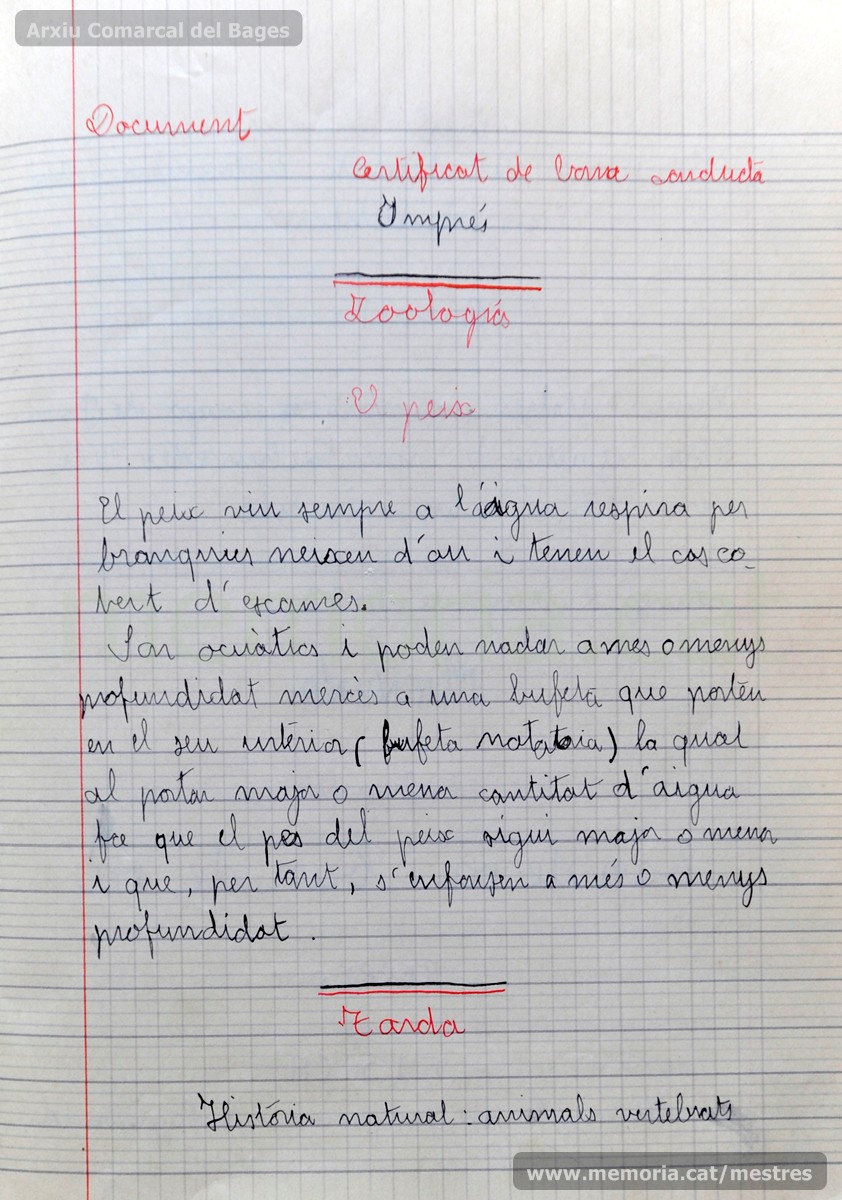 Arxiu Comarcal del Bages
Document
Certificat de bona conducta
Imprés
Zoología
El peix
El peix viu sempre a l'áigua respira per
branquies neixen d'ou i tenen el cos co-
bert d'escames.
Son acuàtics i poden nadar a mes o menys
profundidat mercès a una bufeta que porten
en el seu intérior (bufeta natatoia) la qual
al portar major o menor cantitat d'aigua
fa que el pes del peix sigui major o menor
i que, per tant, s'enfonsen a més o menys
profundidat.
Tarda
História natural: animals vertebrats
www.memoria.cat/mestres